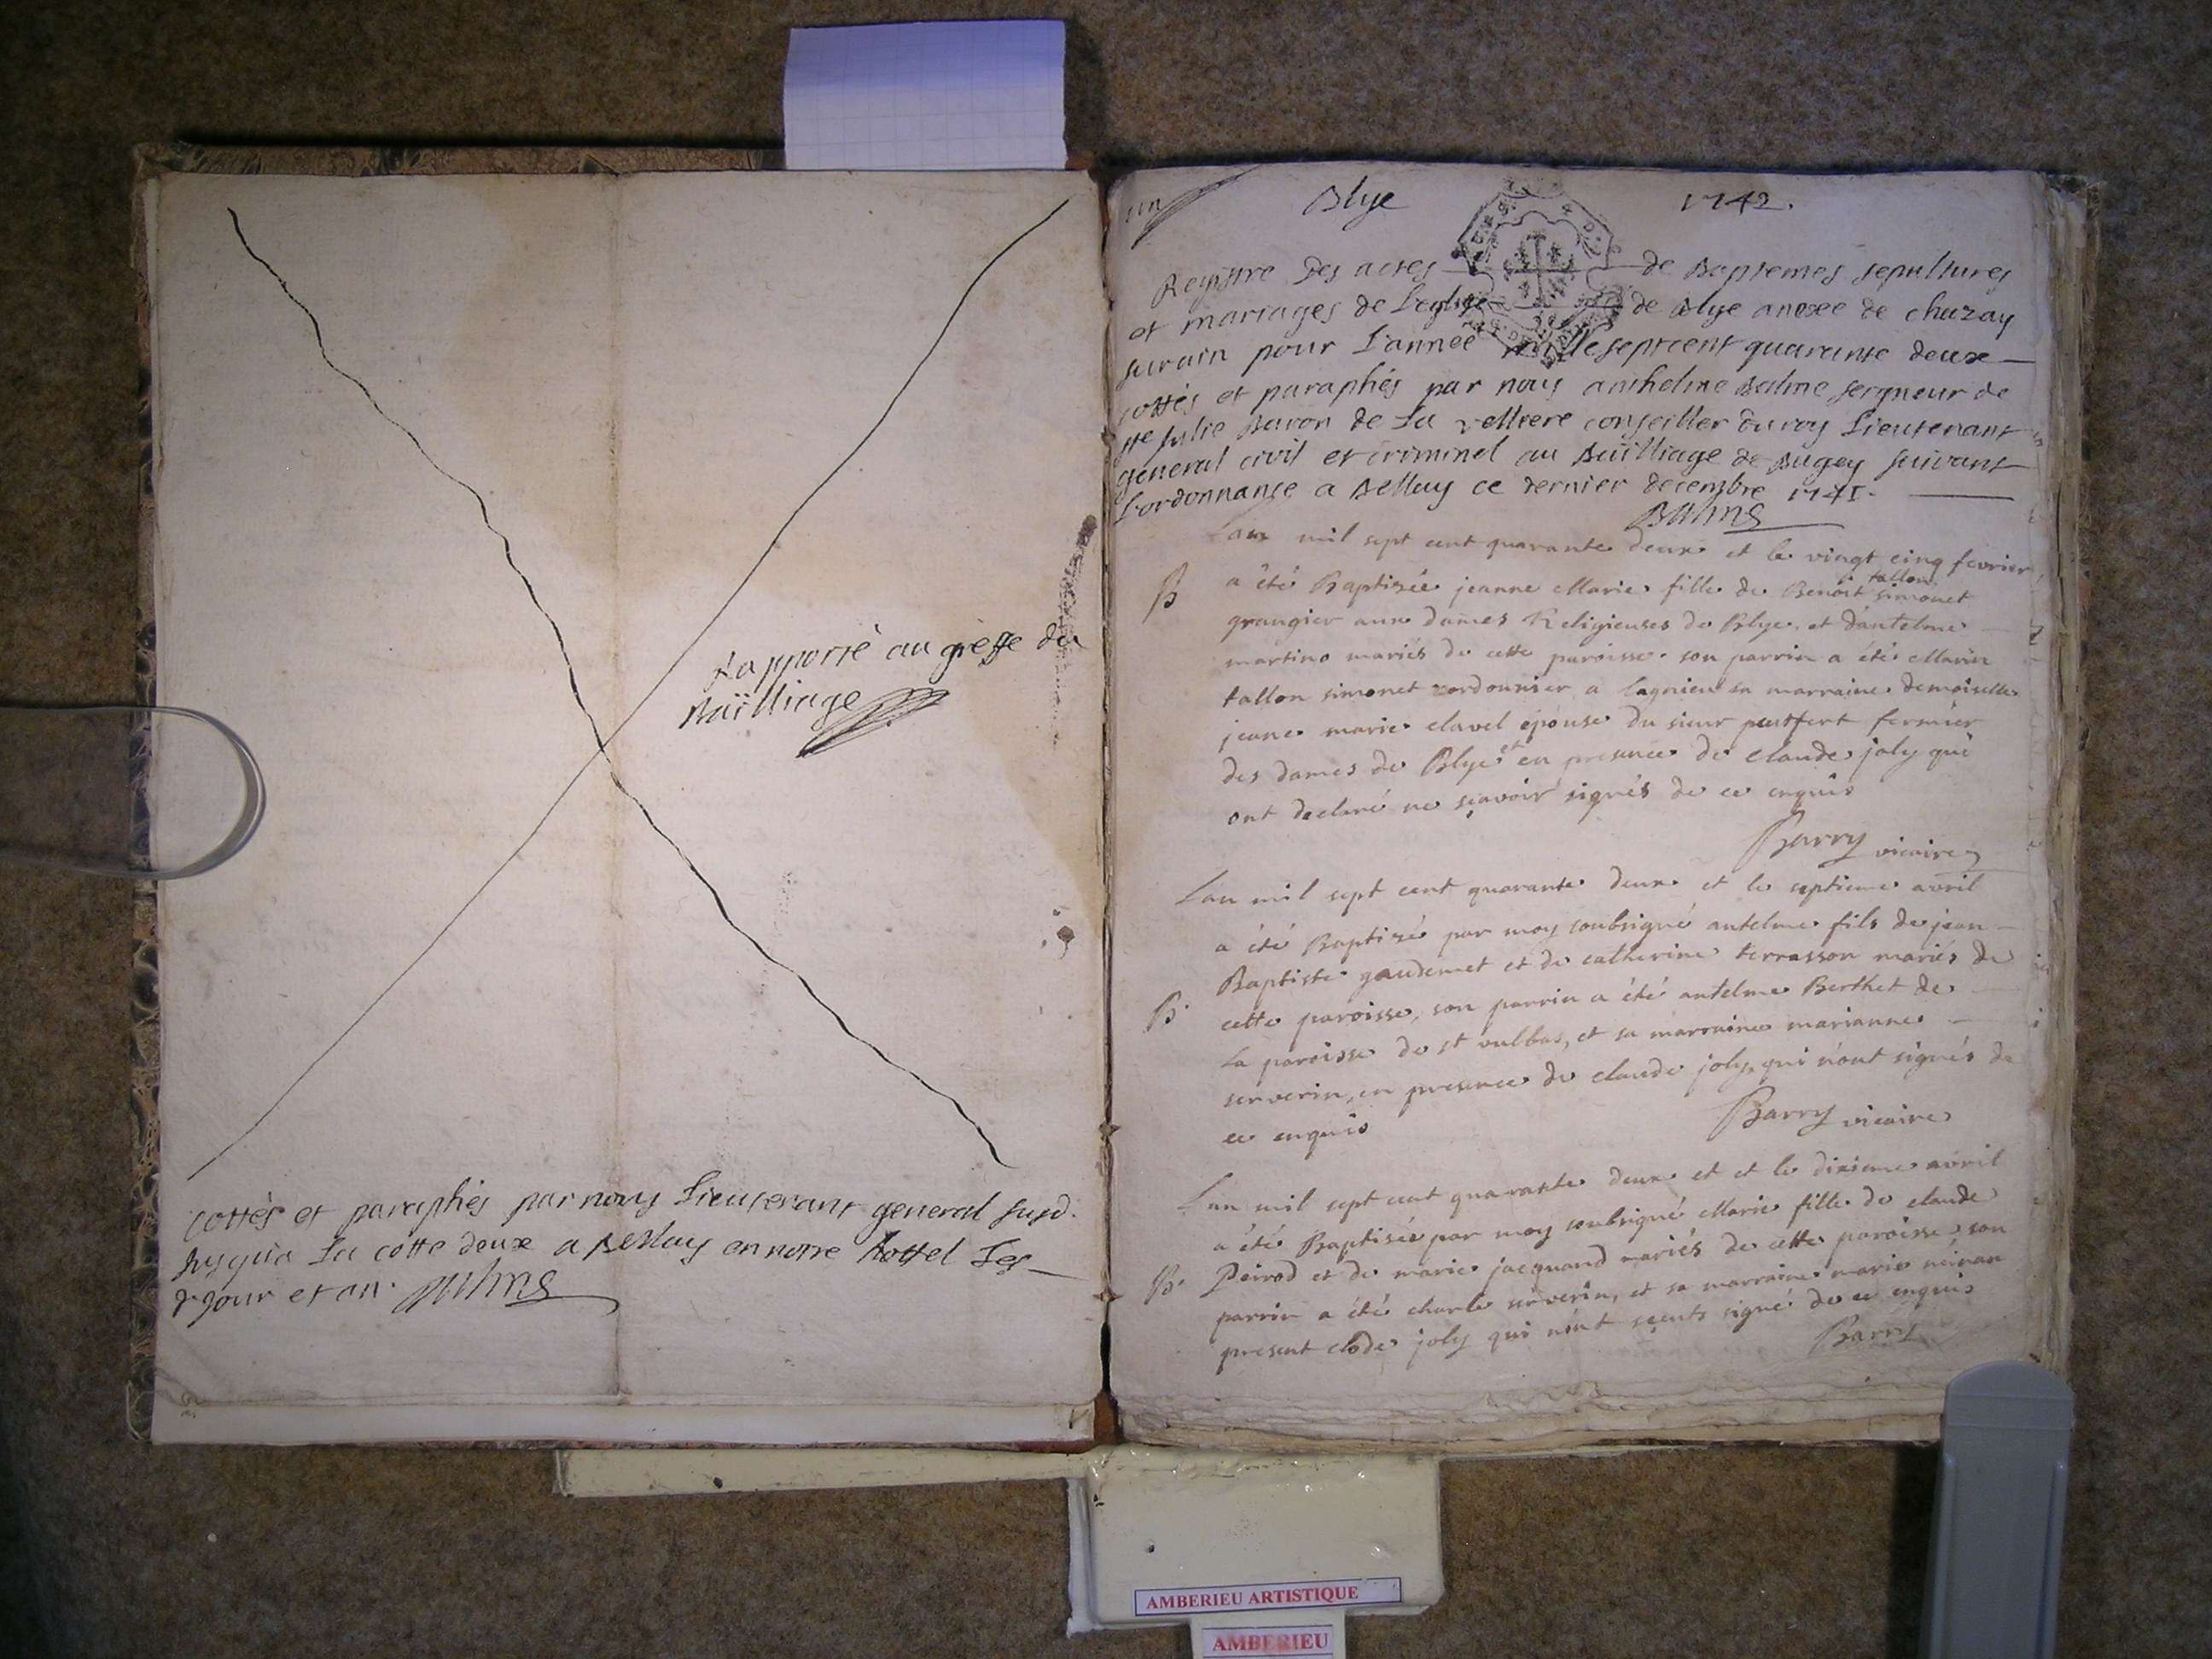 Rapporté au greffe du
Bailliage
cottés et paraphés par nous Lieutenant general susd.
Jusqu'a La cotte deux a Bellay en notre hottel Les
d. jour et an. Balme
un Blye 1742.
Registre des actes de Baptemes sepultures
et mariages de L'eglise de Blye anexée de chazay
surain pour L'année mille septcent quarante deux
cottés et paraphés par nous anthelme Balme seigneur de
ste Julie Baron de La velliere conseiller du roy Lieutenant
géneral civil et criminel au Bailliage de Bugey suivant
L'ordonnance a Bellay ce dernier decembre 1741.
Balme
Lan mil sept cent quarante deux et le vingt cinq fevrier
tallon
B a été Baptisée jeanne Marie fille de Benoist simonet
grangier aux dames Religieuses de Blye, et d'antelme
martino mariés de cette paroisse. son parrin a été Marin
tallon simonet cordonnier a lagnieu sa marraine demoiselle
jeane marie clavel épouse du sieur fermier
des dames de Blye et en presence de claude joly qui
ont declaré ne sçavoir signés de ce enquis
Barry vicaire
Lan mil sept cent quarante deux et le septieme avril
a été Baptisé par moy soubsigné antelme fils de jean
Baptiste gaudemet et de catherine terrasson mariés de
B. cette paroisse, son parrin a été antelme Berthet de
La paroisse de st vulbas, et sa marraine marianne
serverin, en presence de claude joly, qui n'ont signés de
ce enquis
Barry vicaire
Lan mil sept cent quarante deux et et le dixieme avril
a été Baptisée par moy soubsigné Marie fille de claude
B. Peirod et de marie jacquand mariés de cette paroisse, son
parrin a été charle serverin, et sa marraine marie
present clode joly qui n'ont signé de ce enquis
Barry
AMBERIEU ARTISTIQUE
AMBERIEU